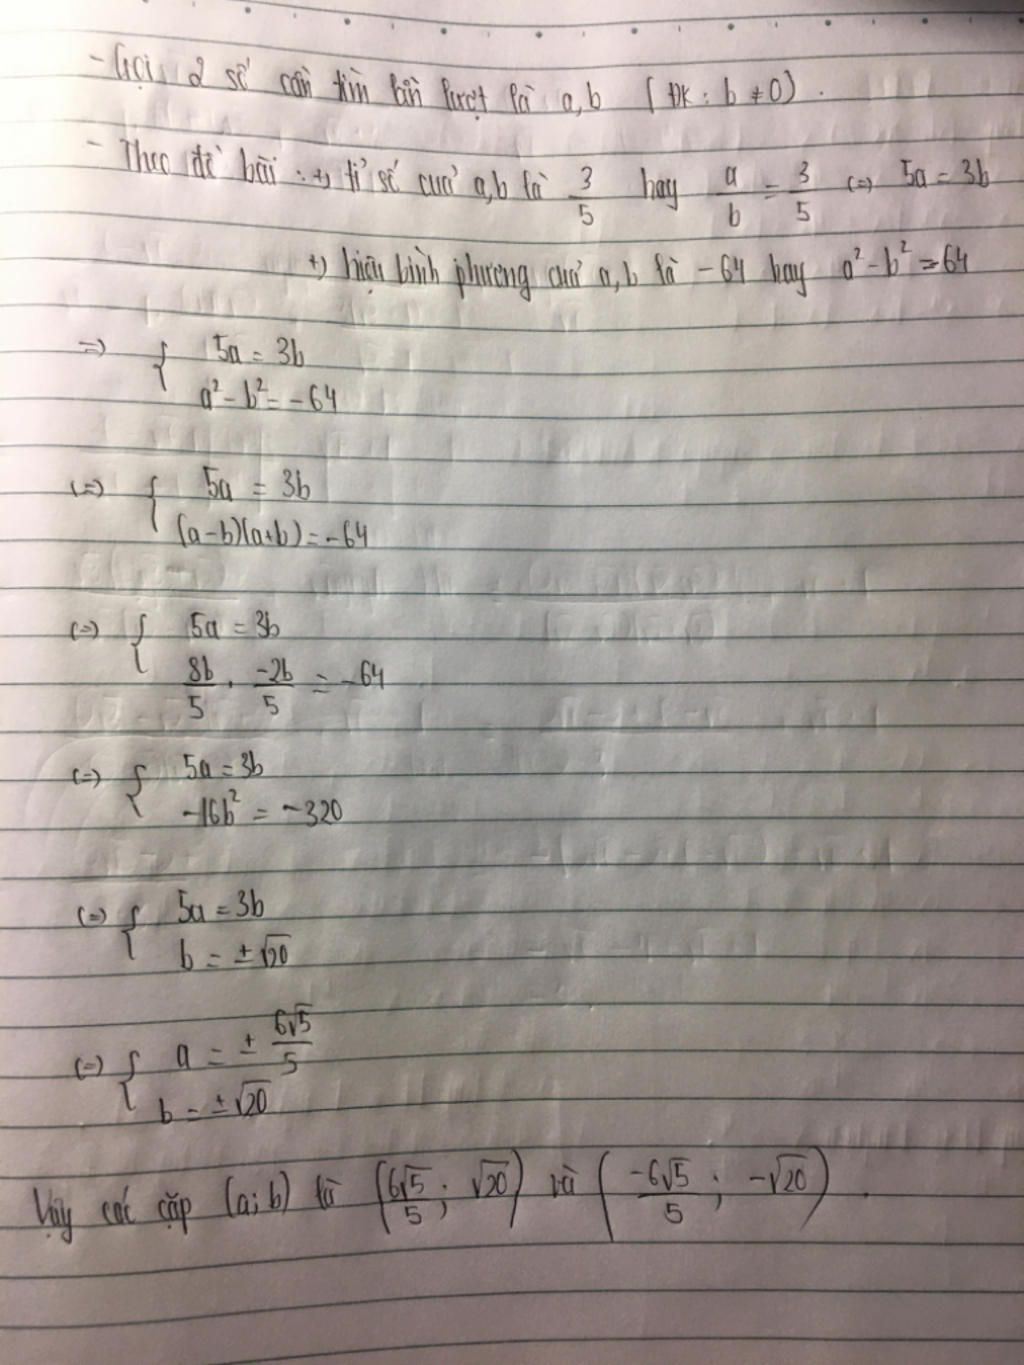 - Gọi 2 số cần tìm lần lượt là a,b (ĐK: b ≠ 0).
- Theo đề bài: +) tỉ số của a,b là 3/5 hay a/b = 3/5 (=) 5a = 3b
+) hiệu bình phương của a,b là -64 hay a² - b² = -64
=) { 5a = 3b
a² - b² = -64
(=) { 5a = 3b
(a-b)(a+b) = -64
(=) { 5a = 3b
8b/5 . -2b/5 = -64
(=) { 5a = 3b
-16b² = -320
(=) { 5a = 3b
b = ±√20
(=) { a = ± 6√5/5
b = ±√20
Vậy các cặp (a;b) là (6√5/5; √20) và (-6√5/5; -√20).